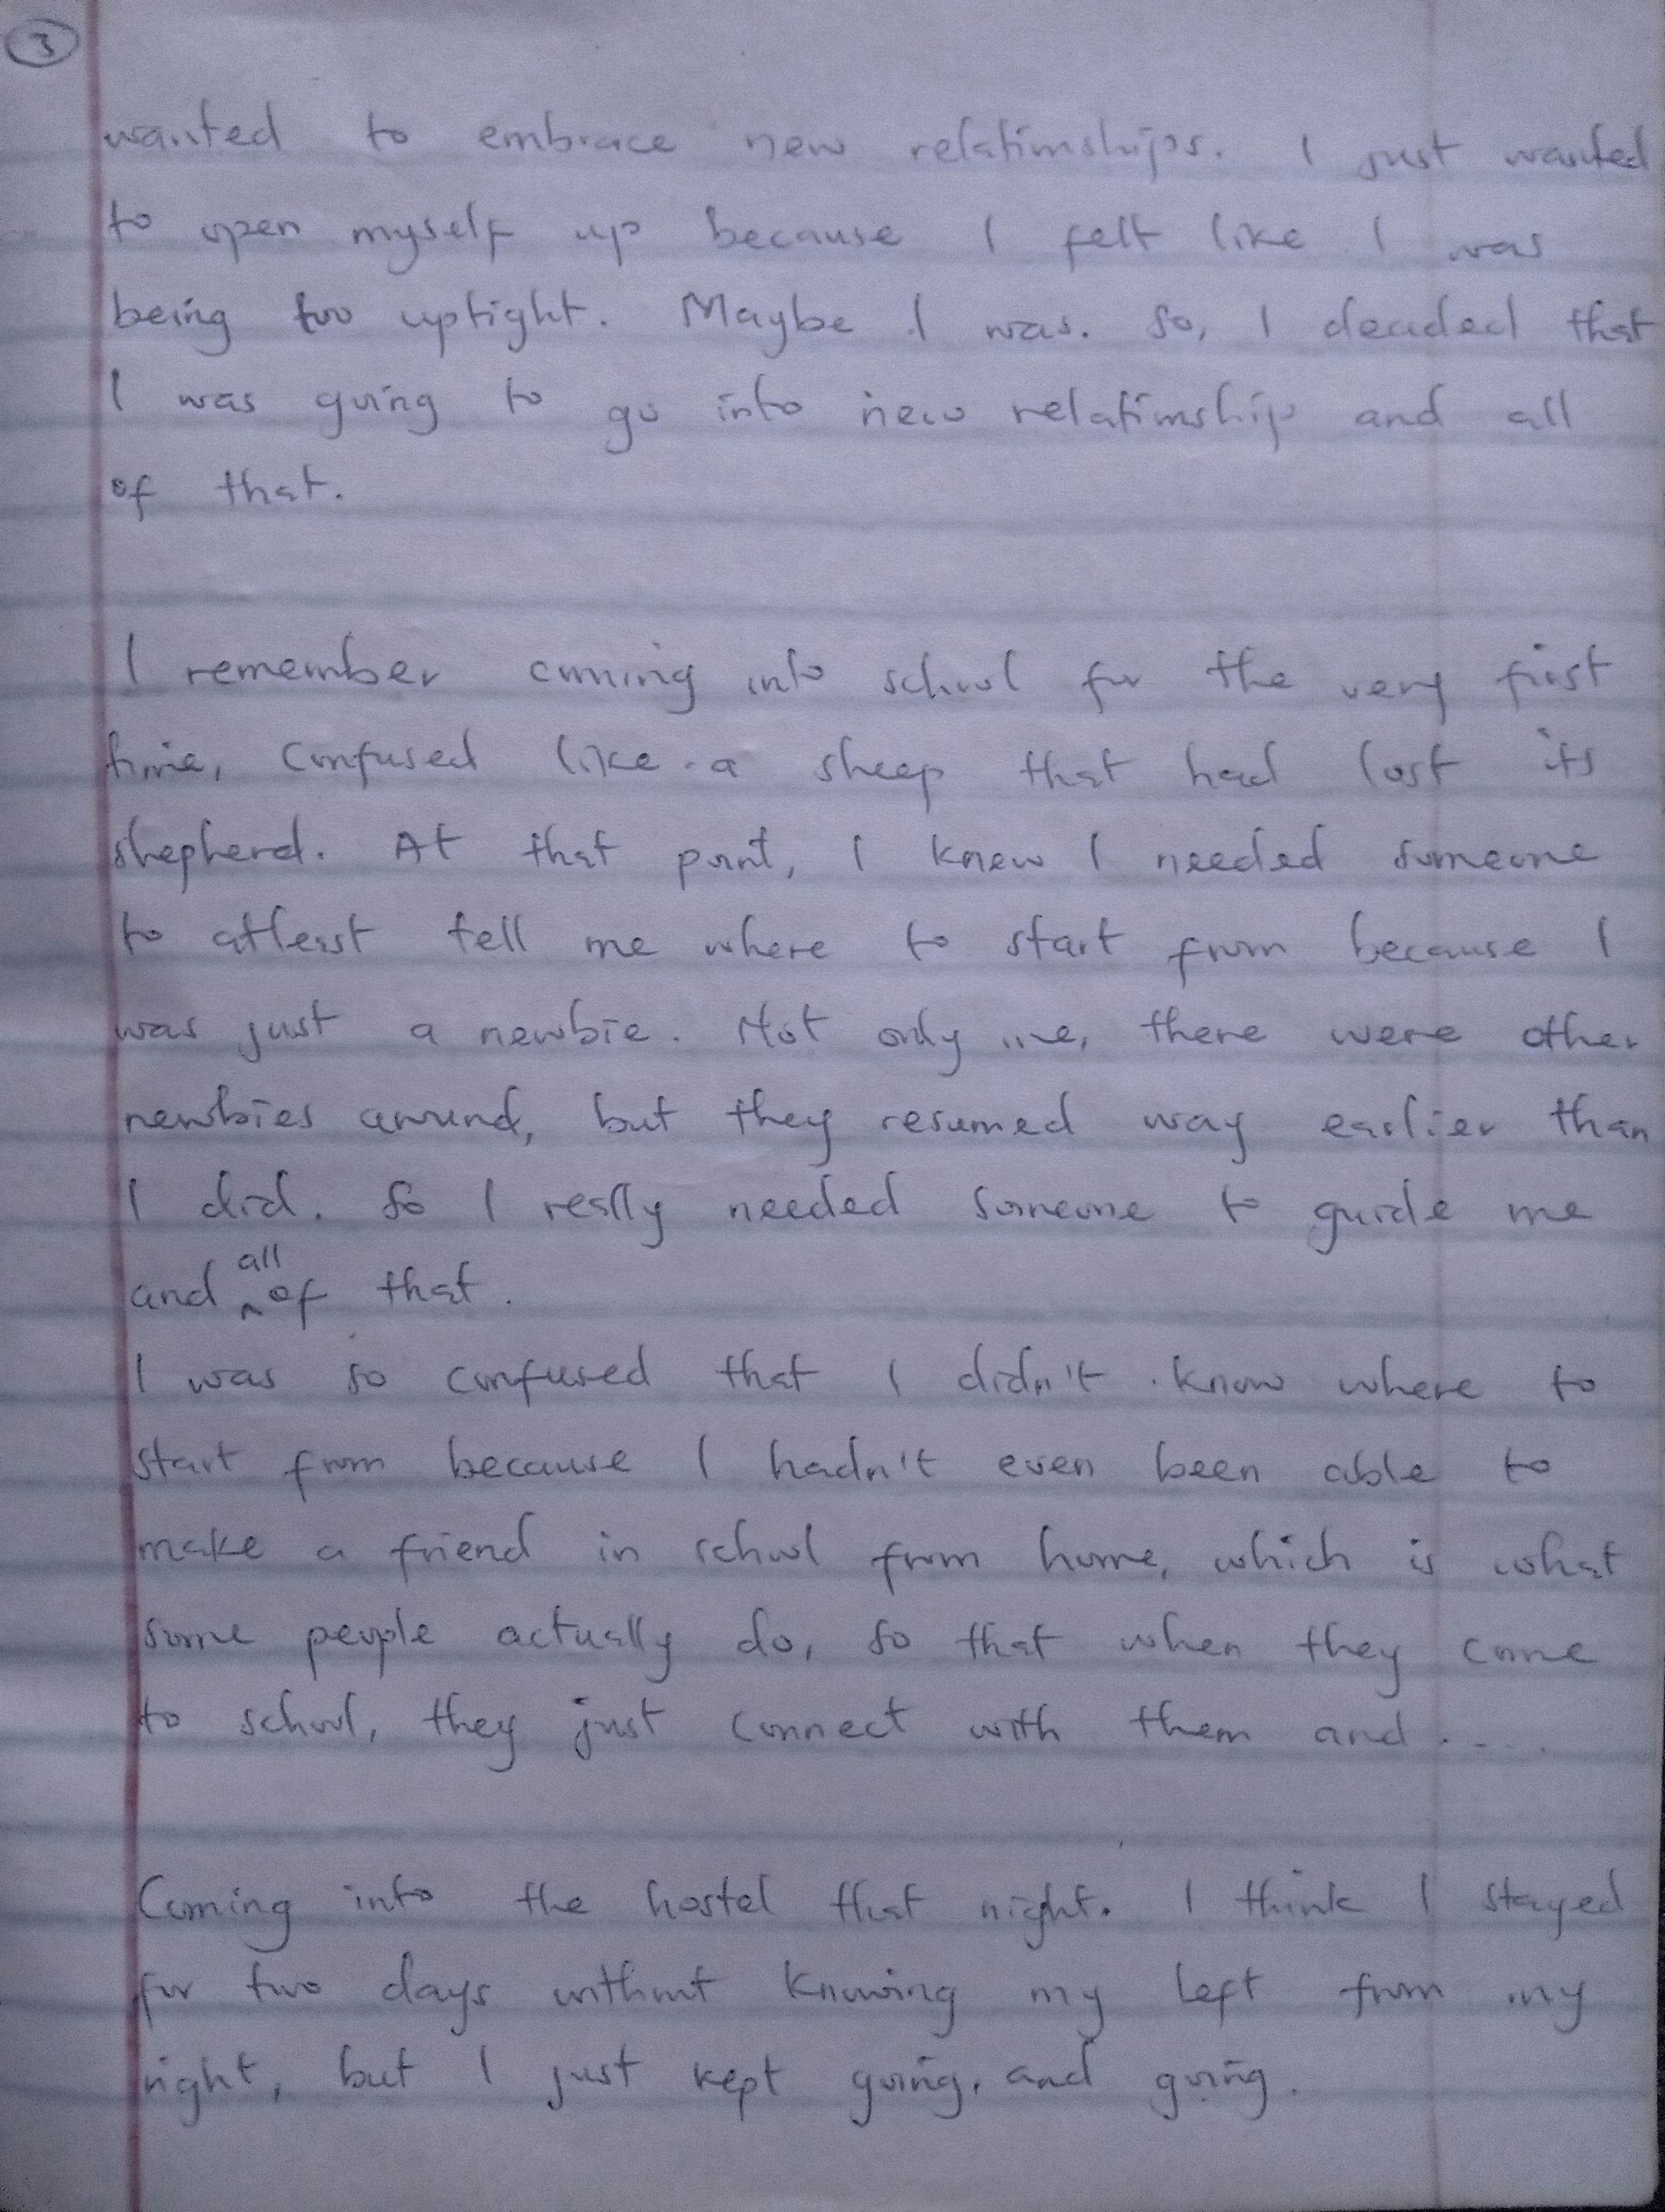 3
wanted to embrace new relationships. I just wanted
to open myself up because I felt like I was
being too uptight. Maybe I was. So, I decided that
I was going to go into new relationship and all
of that.
I remember coming into school for the very first
time, confused like a sheep that had lost its
shepherd. At that point, I knew I needed someone
to atleast tell me where to start from because I
was just a newbie. Not only me, there were other
newbies around, but they resumed way earlier than
I did. So I really needed someone to guide me
and all of that.
I was so confused that I didn't know where to
start from because I hadn't even been able to
make a friend in school from home, which is what
some people actually do, so that when they come
to school, they just connect with them and.....
Coming into the hostel that night. I think I stayed
for two days without knowing my left from my
right, but I just kept going, and going.